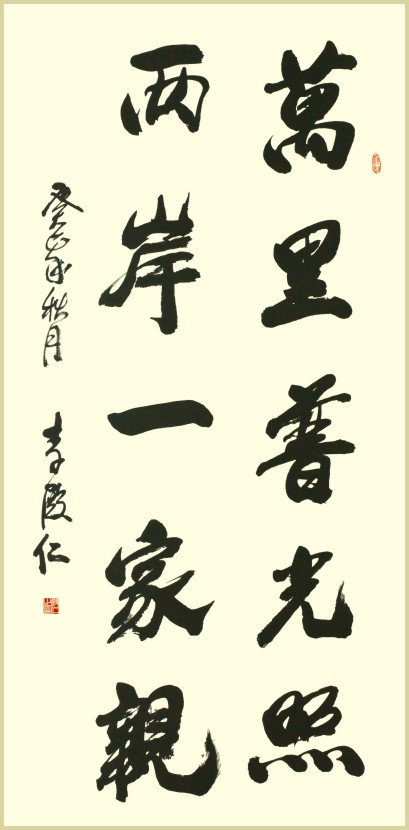 萬里普光照
两岸一家親
癸巳年秋月
李 仁